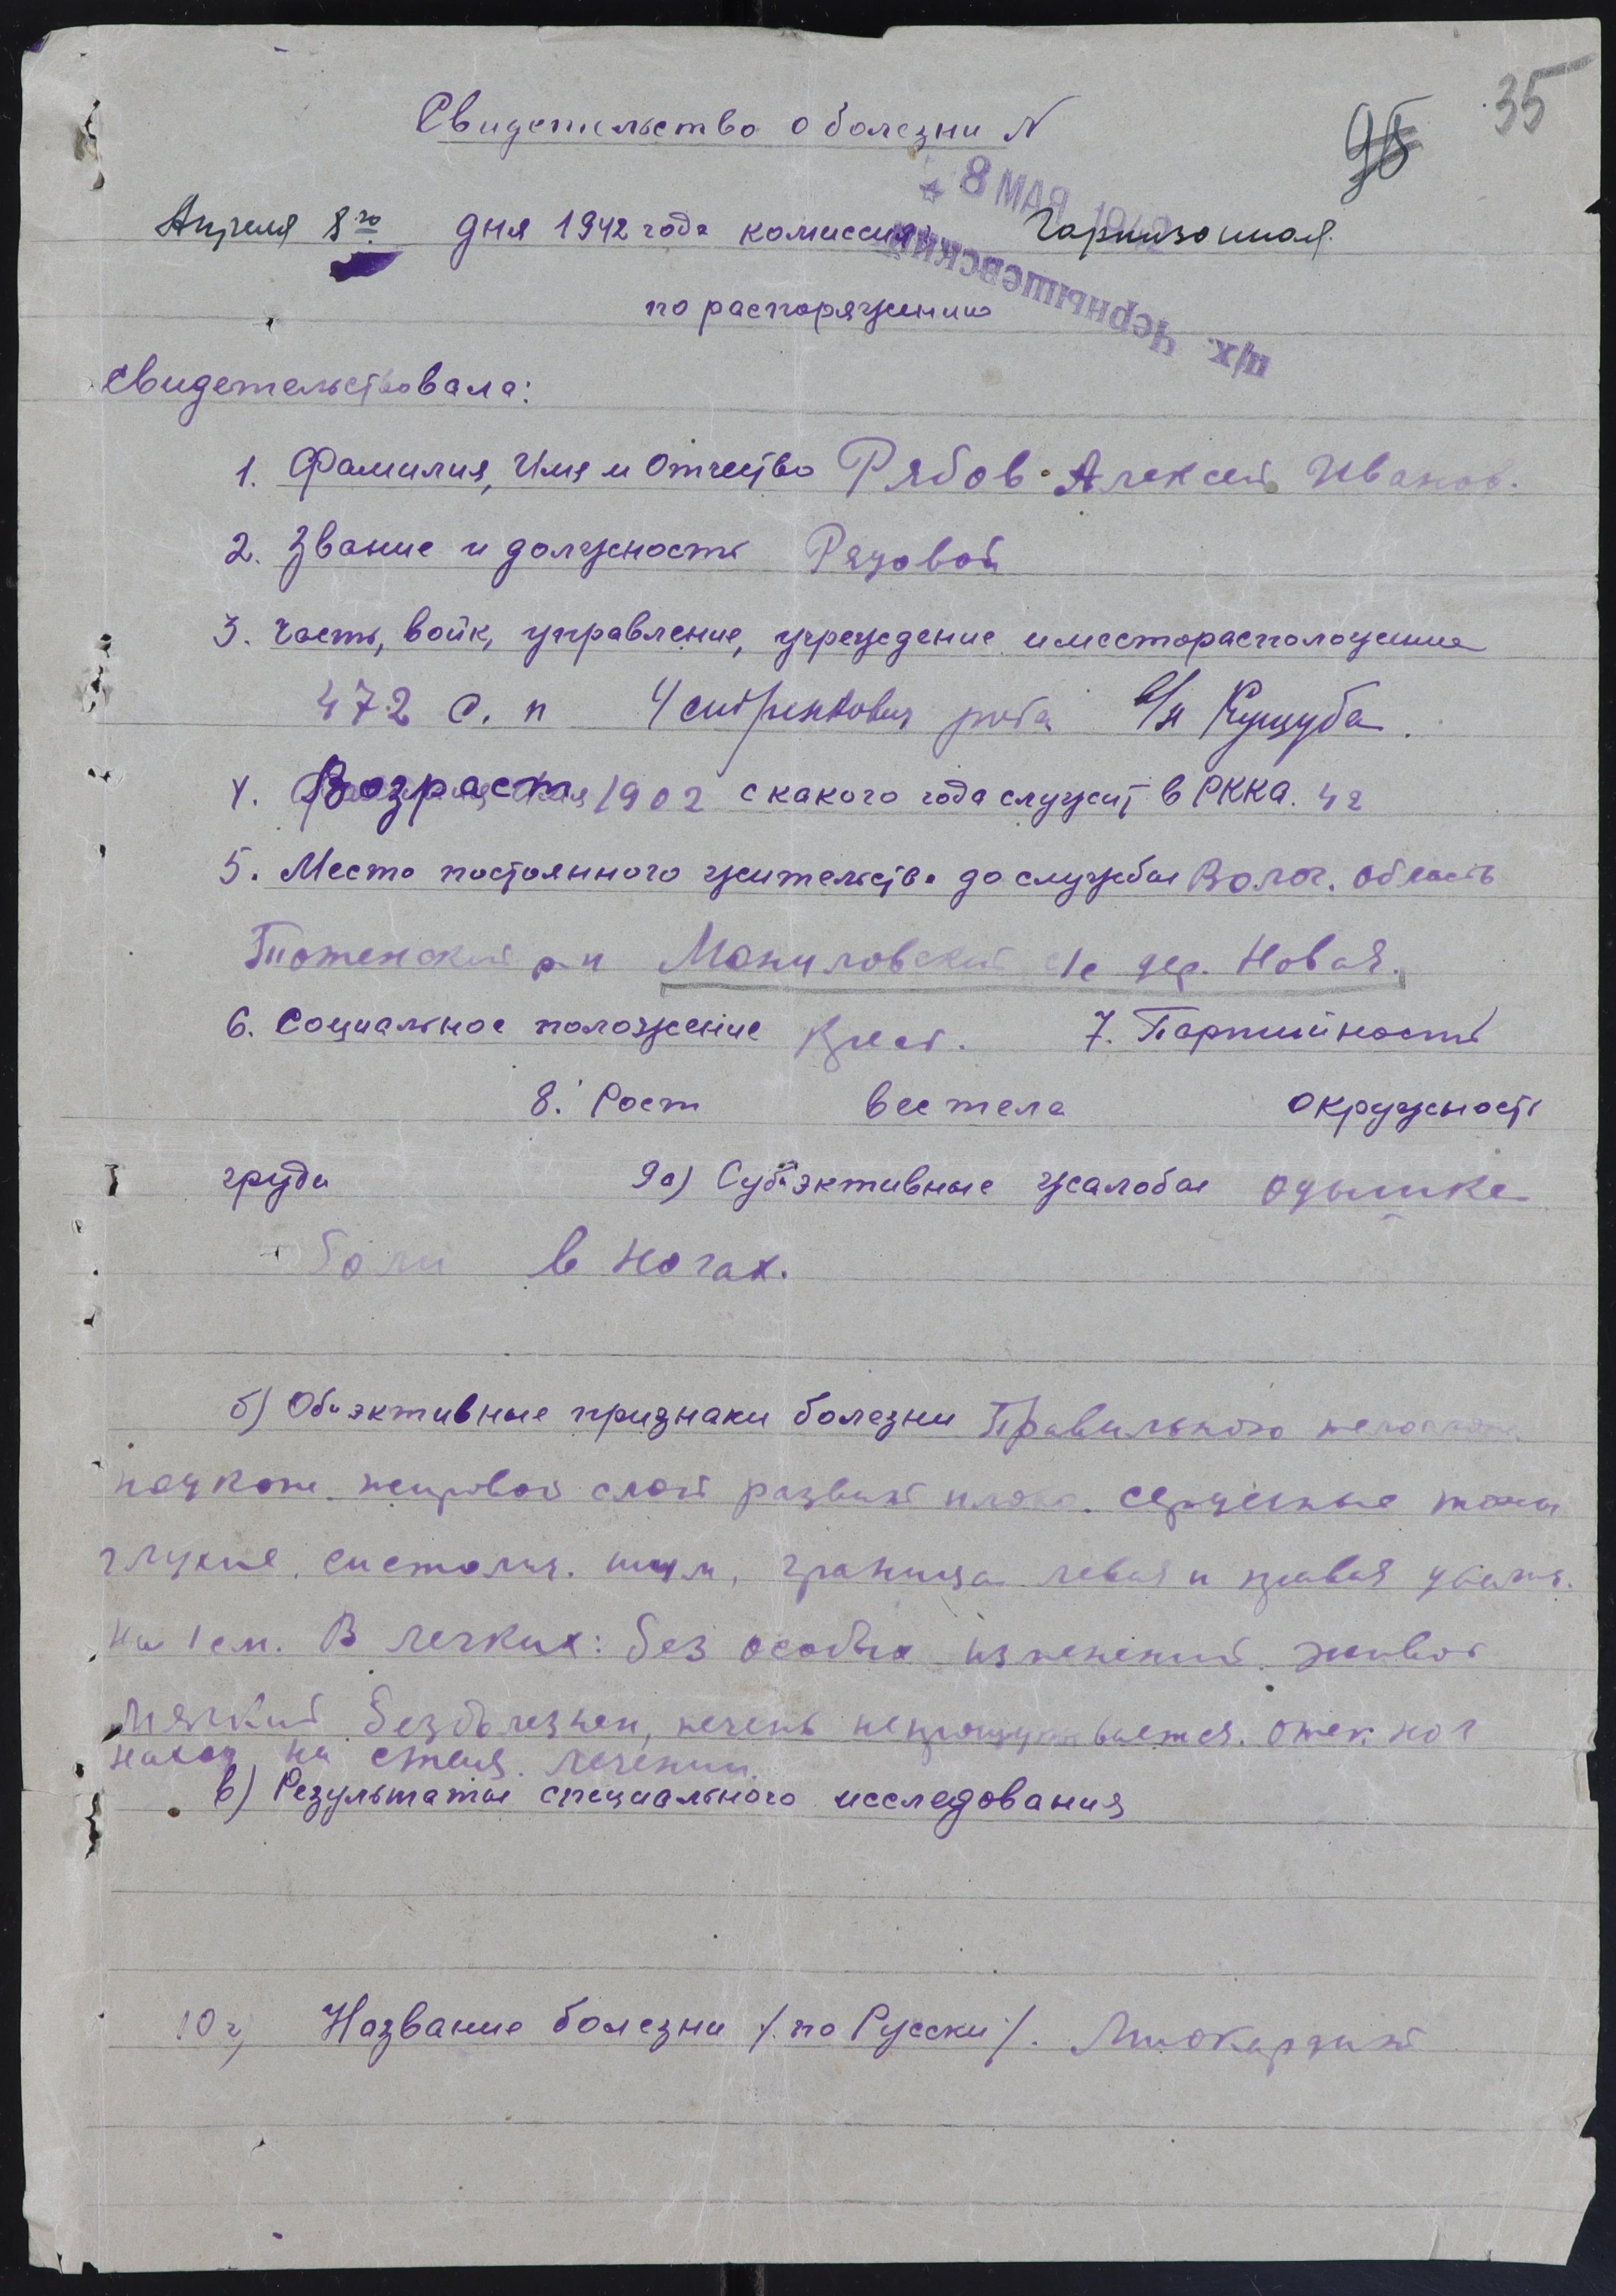 35
95
Свидетельство о болезни N
★ 8 МАЯ 1942
п/х. Чернышевский
Апреля 8го дня 1942 года комиссия Гарнизонная
по распоряжению
свидетельствовала:
1. Фамилия, Имя и Отчество Рябов Алексей Иванов.
2. Звание и должность Рядовой
3. Часть, войк, управление, учреждение и месторасположение
472 с. п 4 рота Кущуба.
4. Возраст 1902 с какого года служит в РККА. 42
5. Место постоянного жительства до службы Волог. область
Тотемский р-н Маниловский с/с дер. Новая.
6. Социальное положение Крест. 7. Партийность
8. Рост вес тела окружность
груди 9а) Субъэктивные жалобы одышка
боли в ногах.
б) Объэктивные признаки болезни Правильного
жировой слой развит плохо. сердечные тоны
глухие, систолич. шум, граница левая и правая увелич.
на 1 см. В легких: без особых изменений. живот
мягкий безболезнен, печень непрощупывается. отек ног
на лечении.
в) Результаты специального исследования
10 г) Название болезни /. по Русски /. Миокардит